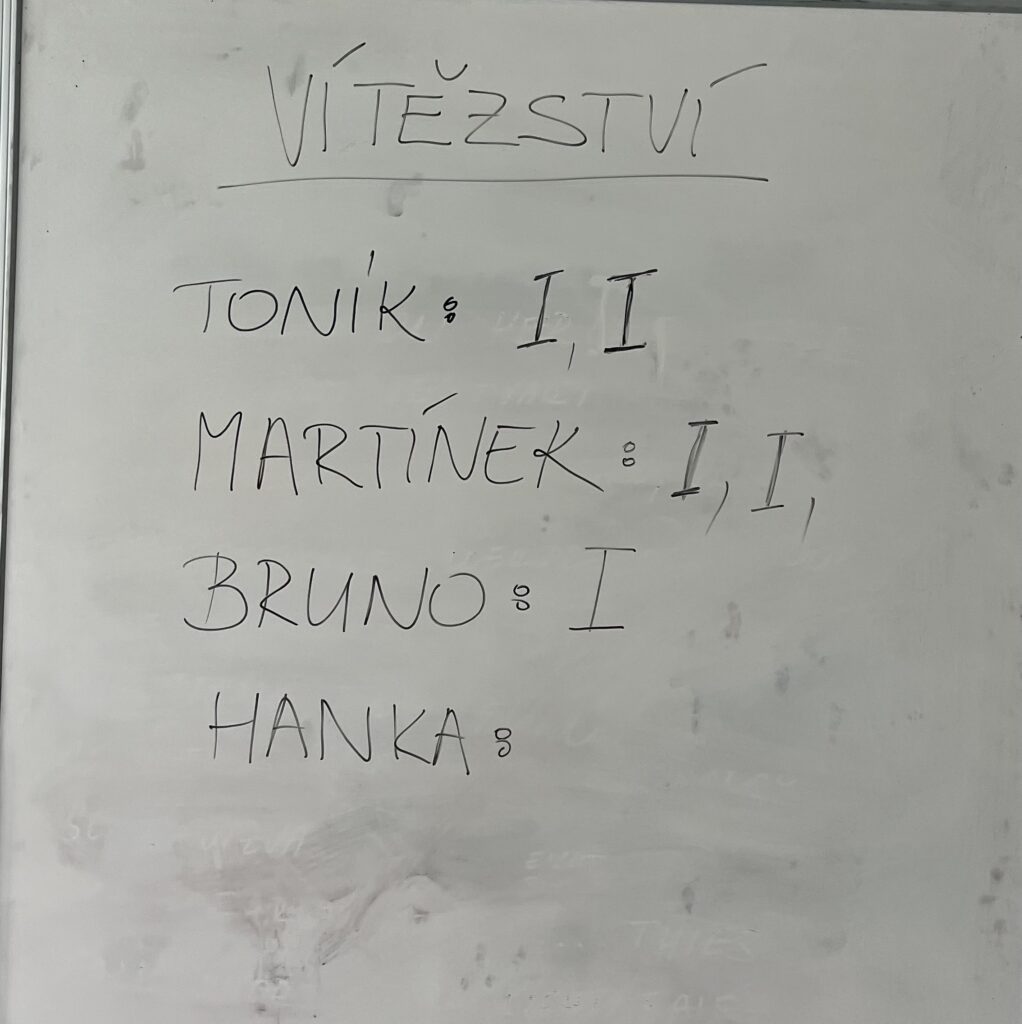 VÍTĚZSTVÍ
TONÍK: I, I
MARTÍNEK: I, I,
BRUNO: I
HANKA: